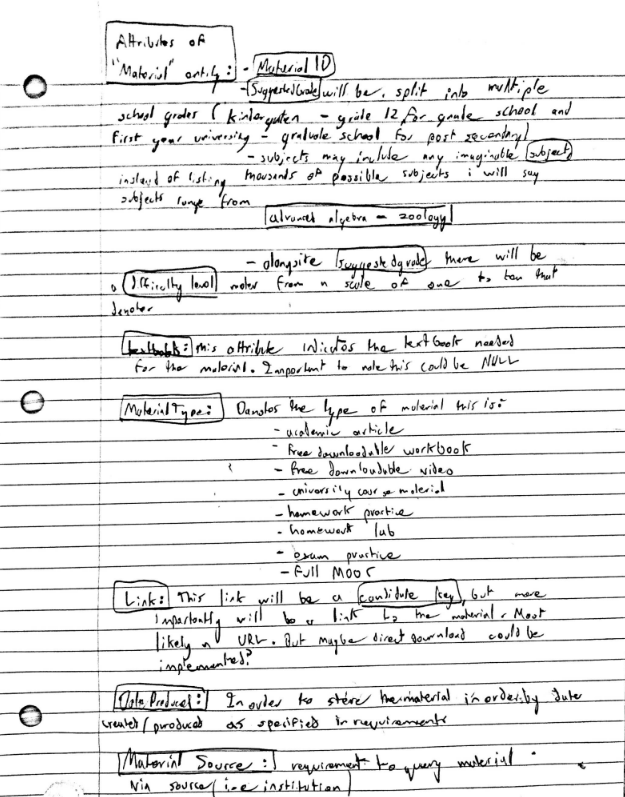 Attributes of
"Material" entity: - Material ID
- SuggestedGrade will be split into multiple
school grades ( kintergarten - grade 12 for grade school and
first year university - graduate school for post secondary)
- subjects may include any imaginable subject,
instead of listing thousands of possible subjects i will say
subjects range from
advanced algebra - zoology
- alongsite suggestedgrade there will be
a difficulty level meter from a scale of one to ten that
denotes
textbook: this attribute indicates the textbook needed
for the material. Important to note this could be NULL
MaterialType: Denotes the type of material this is:
- academic article
- free downloadable workbook
- free downloadable video
- university course material
- homework practice
- homework lab
- exam practice
- Full MOOC
Link: This link will be a candidate key, but more
importantly will be a link to the material. Most
likely a URL. But maybe direct download could be
implemented?
Date Produced: In order to store the material in order by date
created / produced as specified in requirements
Material Source: requirement to query material
via source ( i.e institution)